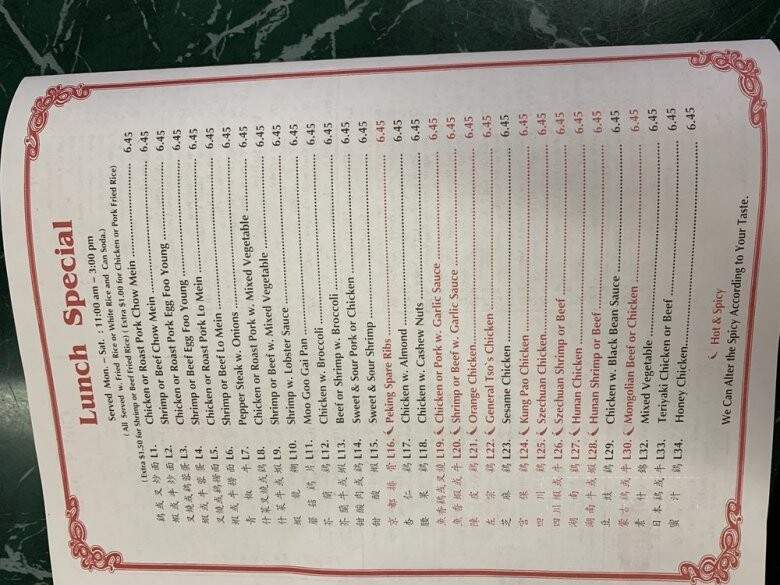 Lunch Special
Served Mon. - Sat. : 11:00 am - 3:00 pm
( All Served w. Fried Rice or White Rice and Can Soda.)
( Extra $1.50 for Shrimp or Beef Fried Rice) ( Extra $1.00 for Chicken or Pork Fried Rice)
鷄或叉炒面 L1. Chicken or Roast Pork Chow Mein 6.45
蝦或牛炒面 L2. Shrimp or Beef Chow Mein 6.45
叉燒或鷄蓉蛋 L3. Chicken or Roast Pork Egg Foo Young 6.45
蝦或牛蓉蛋 L4. Shrimp or Beef Egg Foo Young 6.45
叉燒或鷄撈面 L5. Chicken or Roast Pork Lo Mein 6.45
蝦或牛撈面 L6. Shrimp or Beef Lo Mein 6.45
青椒牛 L7. Pepper Steak w. Onions 6.45
什菜叉燒或鷄 L8. Chicken or Roast Pork w. Mixed Vegetable 6.45
什菜牛或蝦 L9. Shrimp or Beef w. Mixed Vegetable 6.45
蝦龍糊 L10. Shrimp w. Lobster Sauce 6.45
蘑菇鷄片 L11. Moo Goo Gai Pan 6.45
芥蘭鷄 L12. Chicken w. Broccoli 6.45
芥蘭牛或蝦 L13. Beef or Shrimp w. Broccoli 6.45
甜酸肉或鷄 L14. Sweet & Sour Pork or Chicken 6.45
甜酸蝦 L15. Sweet & Sour Shrimp 6.45
京都排骨 L16. Peking Spare Ribs 6.45
杏仁鷄 L17. Chicken w. Almond 6.45
腰果鷄 L18. Chicken w. Cashew Nuts 6.45
魚香鷄或叉燒 L19. Chicken or Pork w. Garlic Sauce 6.45
魚香蝦或牛 L20. Shrimp or Beef w. Garlic Sauce 6.45
陳皮鷄 L21. Orange Chicken 6.45
左宗鷄 L22. General Tso's Chicken 6.45
芝麻鷄 L23. Sesame Chicken 6.45
宮保鷄 L24. Kung Pao Chicken 6.45
四川鷄 L25. Szechuan Chicken 6.45
四川蝦或牛 L26. Szechuan Shrimp or Beef 6.45
湖南鷄 L27. Hunan Chicken 6.45
湖南牛或蝦 L28. Hunan Shrimp or Beef 6.45
豆豉鷄 L29. Chicken w. Black Bean Sauce 6.45
蒙古鷄或牛 L30. Mongolian Beef or Chicken 6.45
素什錦 L32. Mixed Vegetable 6.45
日本鷄或牛 L33. Teriyaki Chicken or Beef 6.45
蜜汁鷄 L34. Honey Chicken 6.45
Hot & Spicy
We Can Alter the Spicy According to Your Taste.